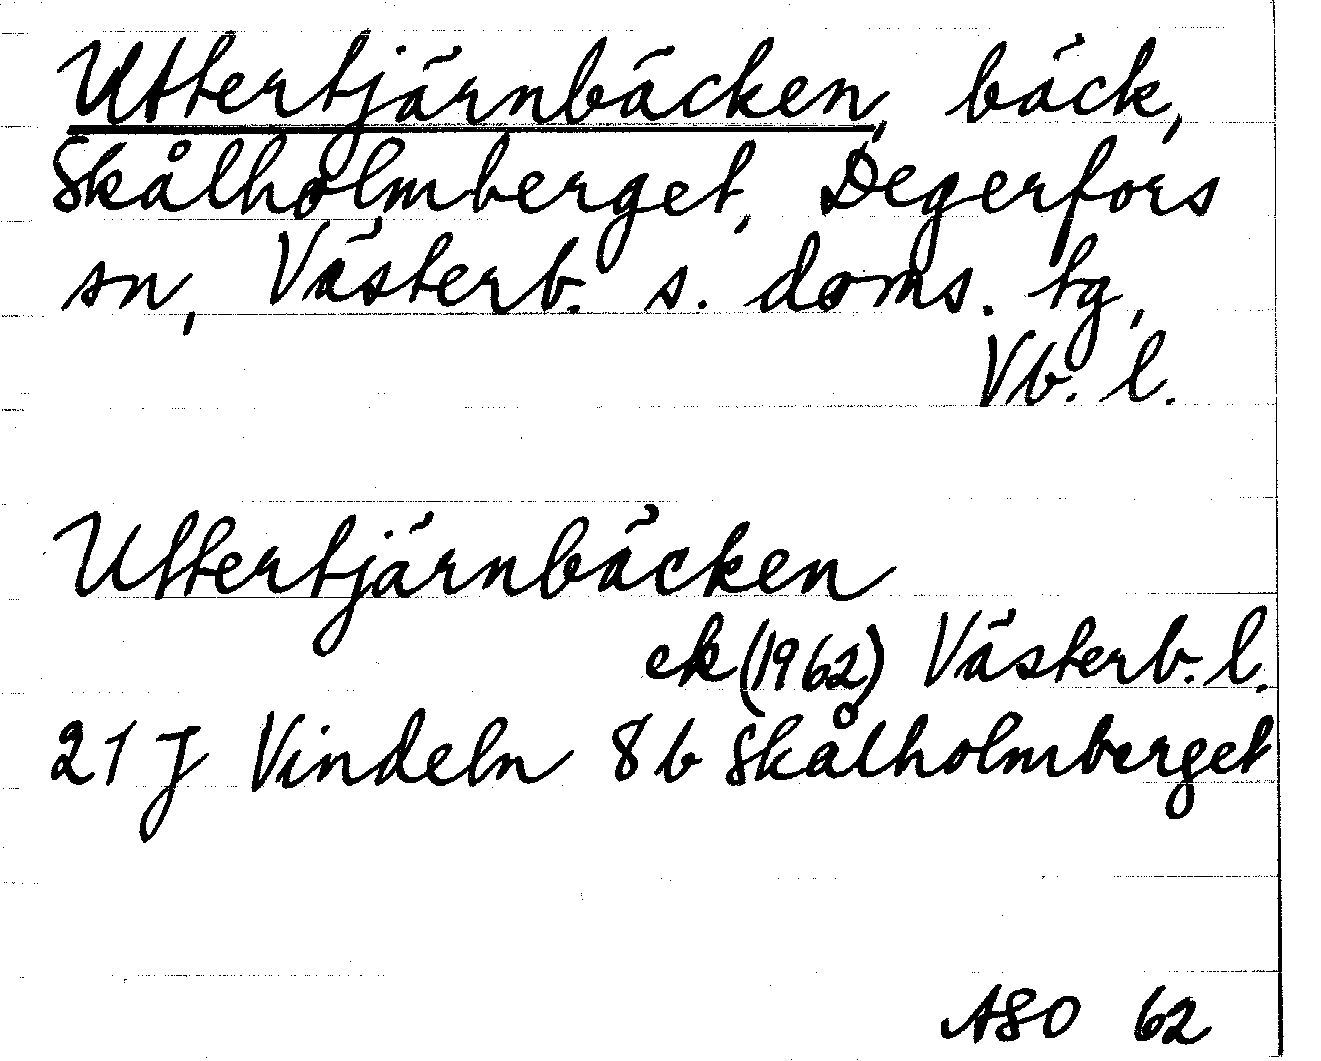 Uttertjärnbäcken, bäck,
Skålholmberget, Degerfors
sn, Västerb. s. doms. tg,
Vb. l.
Uttertjärnbäcken
ek (1962) Västerb. l.
21 J Vindeln 8 b Skålholmberget
ASO 62